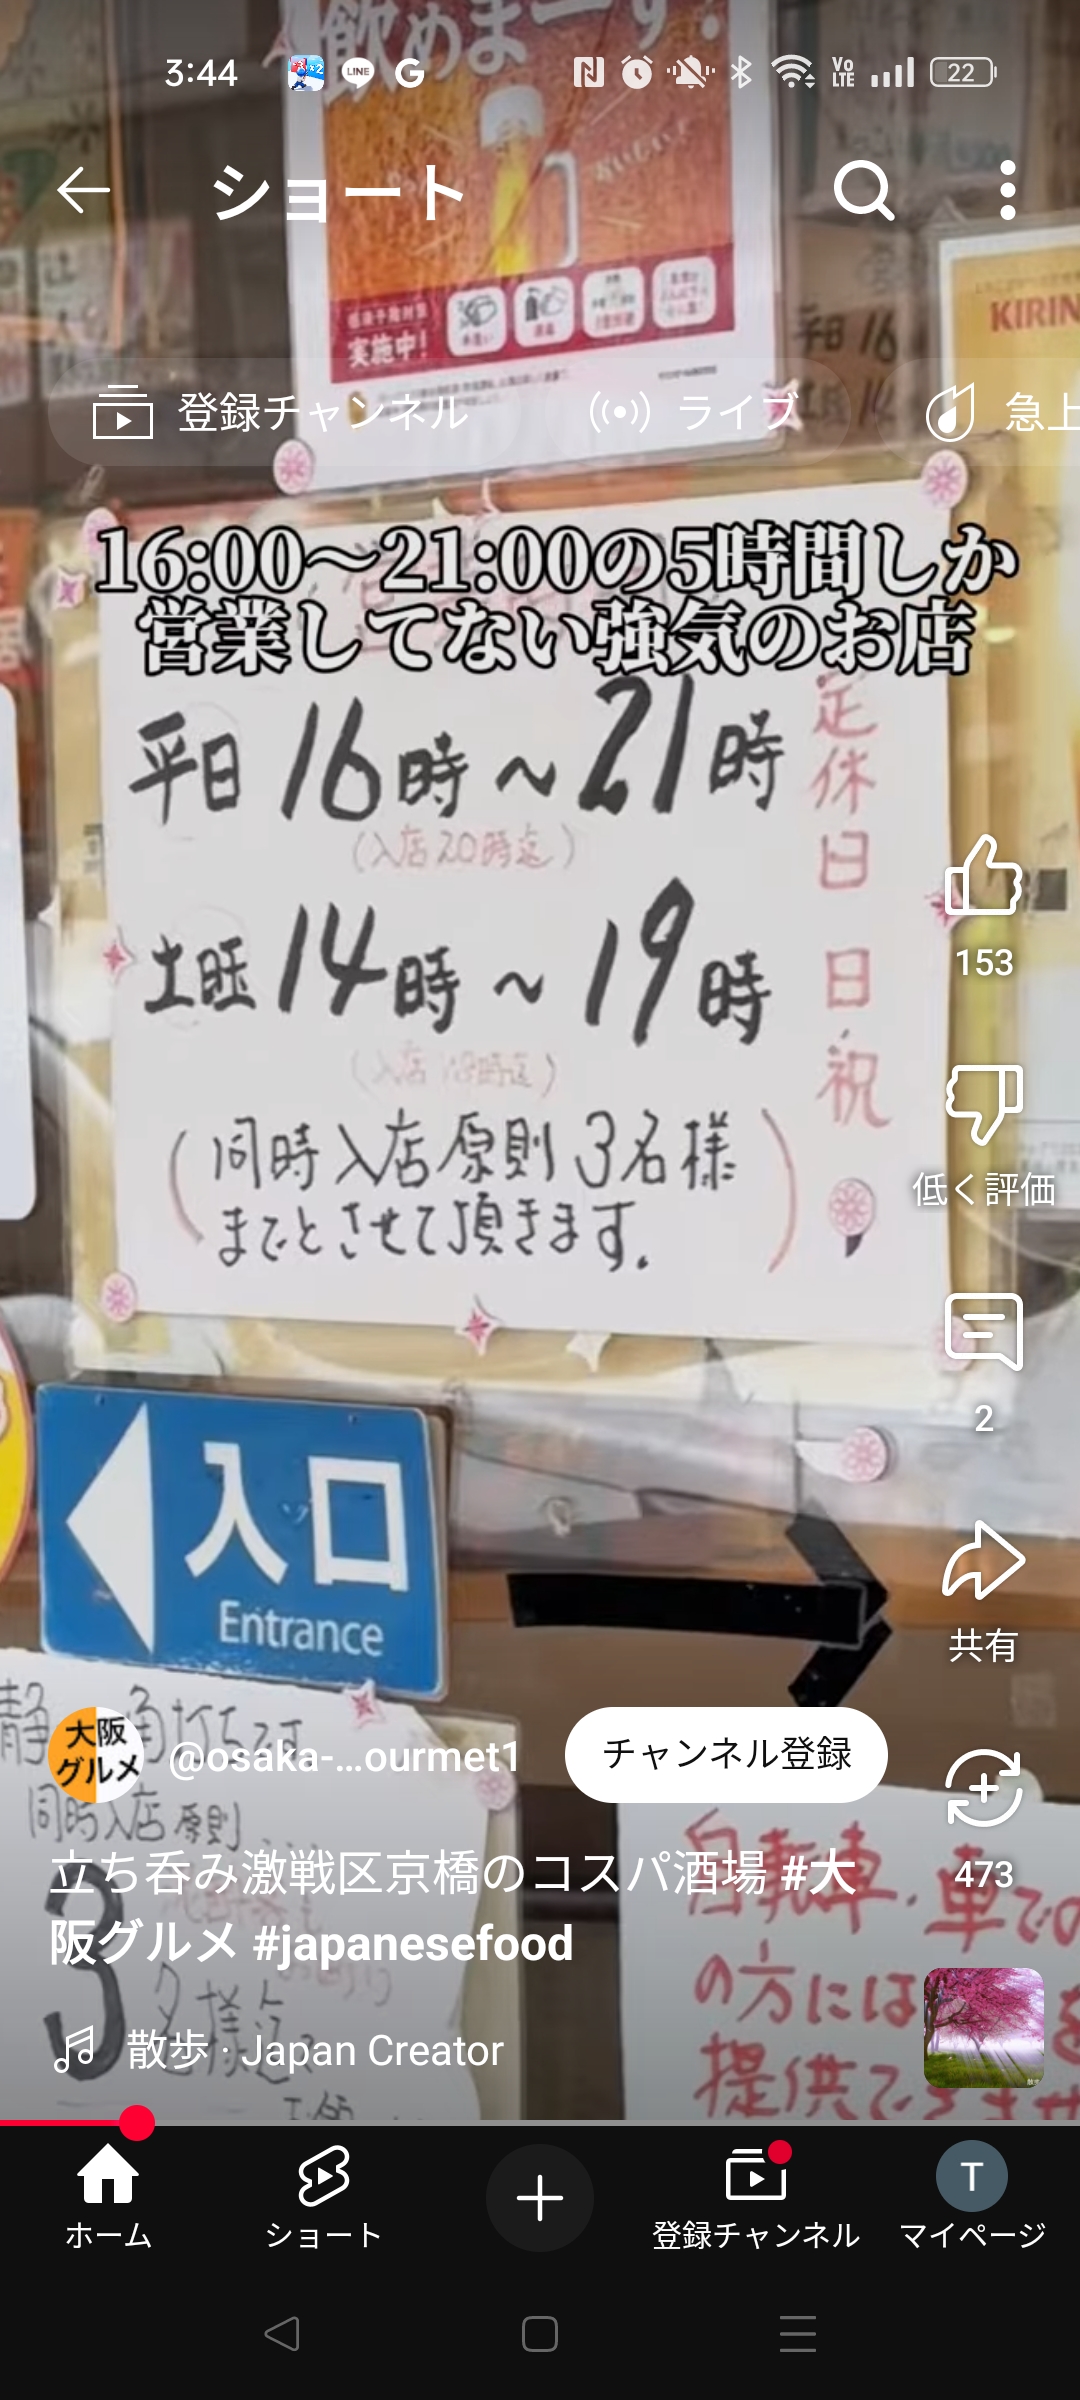 飲めまーす!
3:44
LINE
G
Vo
LTE
22
ショート
実施中!
KIRIN
平日 16
登録チャンネル
ライブ
急上
16:00〜21:00の5時間しか
営業してない強気のお店
平日 16時~21時
(入店20時迄)
土曜 14時~19時
(入店18時迄)
定休日 日・祝
(同時入店原則3名様
までとさせて頂きます。)
153
低く評価
2
入口
Entrance
共有
同時入店原則
3名様迄
自転車・車での
の方には
提供できませ
大阪
グルメ
@osaka-...ourmet1
チャンネル登録
立ち呑み激戦区京橋のコスパ酒場 #大
阪グルメ #japanesefood
473
散歩 · Japan Creator
ホーム
ショート
登録チャンネル
T
マイページ